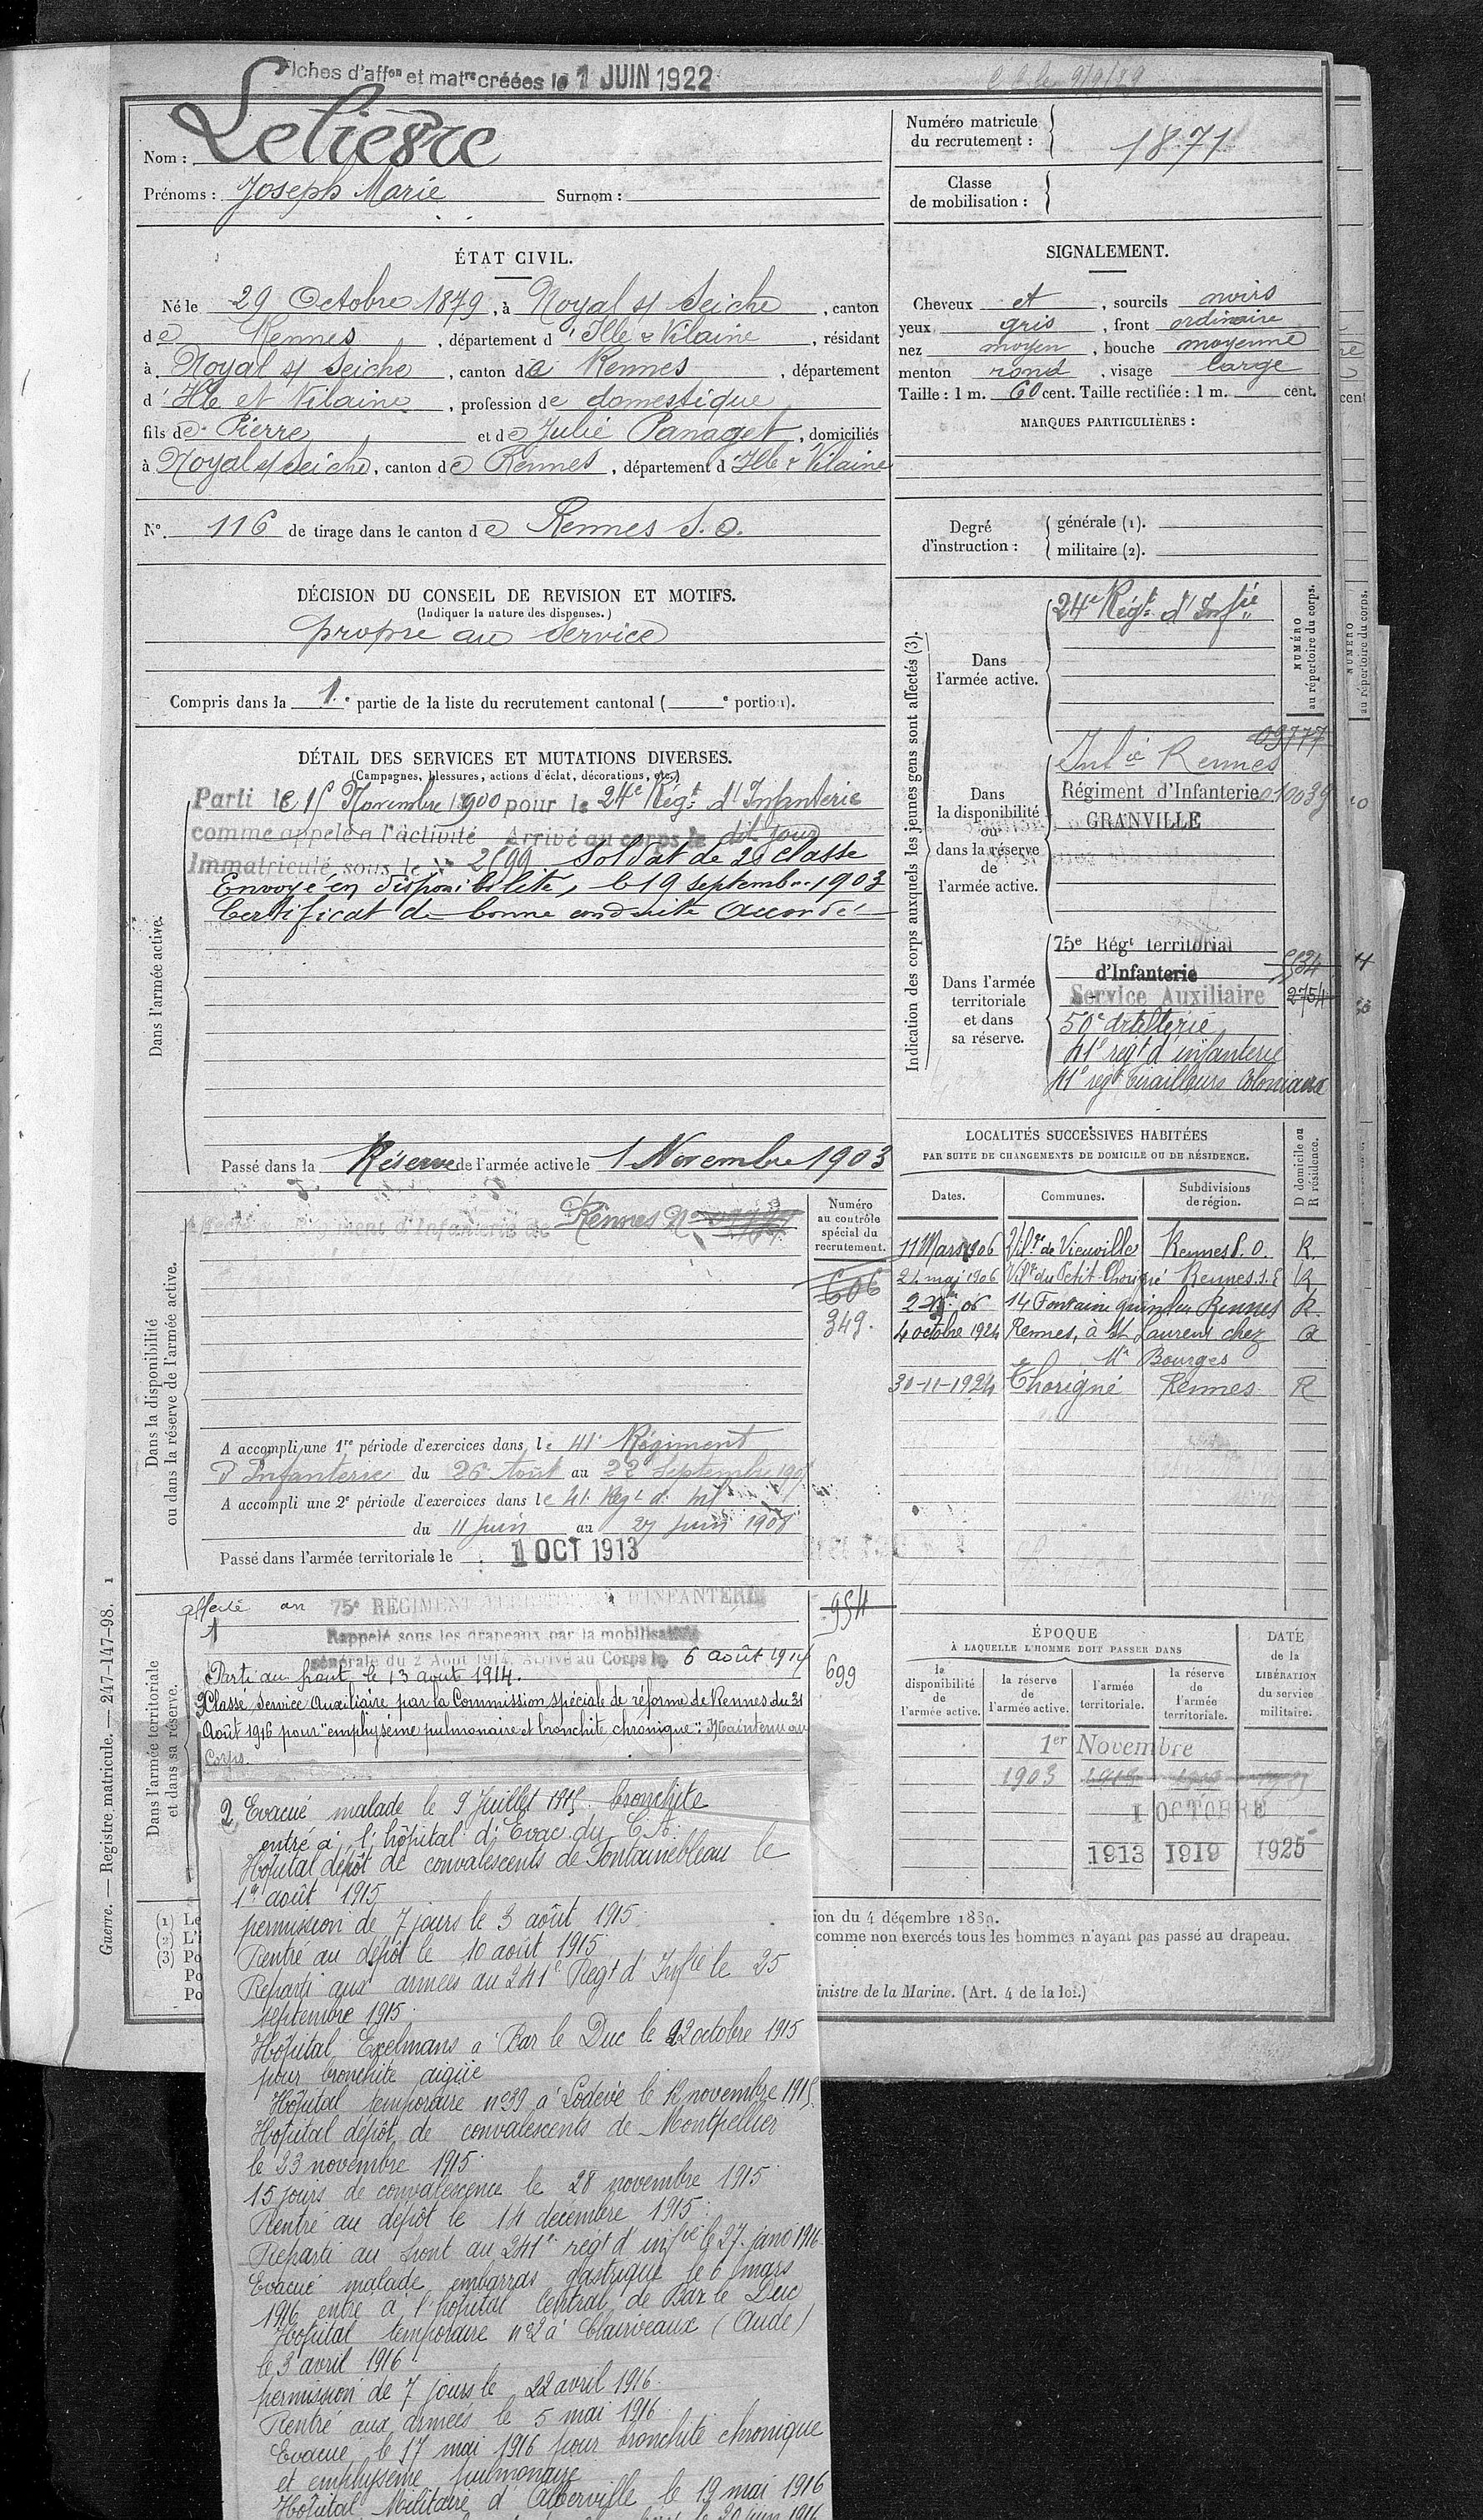 Fiches d'affon et matre créées le 1 JUIN 1922
Nom : Lelièvre
Prénoms : Joseph Marie Surnom :
Numéro matricule
du recrutement : 1871
Classe
de mobilisation :
ÉTAT CIVIL.
Né le 29 Octobre 1879, à Noyal s/ Seiche, canton
de Rennes, département d'Ille & Vilaine, résidant
à Noyal s/ Seiche, canton de Rennes, département
d'Ille et Vilaine, profession de domestique
fils de Pierre et de Julie Panaget, domiciliés
à Noyal s/ Seiche, canton de Rennes, département d'Ille & Vilaine
N° 116 de tirage dans le canton de Rennes S.O.
SIGNALEMENT.
Cheveux et, sourcils noirs
yeux gris, front ordinaire
nez moyen, bouche moyenne
menton rond, visage large
Taille : 1 m. 60 cent. Taille rectifiée : 1 m. cent.
MARQUES PARTICULIÈRES :
Degré
d'instruction :
générale (1).
militaire (2).
DÉCISION DU CONSEIL DE REVISION ET MOTIFS.
(Indiquer la nature des dispenses.)
propre au service
Compris dans la 1.e partie de la liste du recrutement cantonal ( e portion).
DÉTAIL DES SERVICES ET MUTATIONS DIVERSES.
(Campagnes, blessures, actions d'éclat, décorations, etc.)
Dans l'armée active.
Parti le 15 Novembre 1900 pour le 24e Régt d'Infanterie
comme appelé à l'activité Arrivé au corps le dit jour
Immatriculé sous le N° 2599 Soldat de 2e classe
Envoyé en disponibilité, le 19 septembre 1903
Certificat de bonne conduite accordé
Passé dans la Réserve de l'armée active le 1 Novembre 1903
Indication des corps auxquels les jeunes gens sont affectés (3).
NUMÉRO
au répertoire du corps.
Dans
l'armée active.
24e Régt d'Infie
Dans
la disponibilité
ou
dans la réserve
de
l'armée active.
09777
Infie Rennes
Régiment d'Infanterie 010039
GRANVILLE
Dans l'armée
territoriale
et dans
sa réserve.
75e Régt territorial
d'Infanterie
Service Auxiliaire 2754
50e artillerie
41e régt d'infanterie
41e regt tirailleurs Coloniaux
LOCALITÉS SUCCESSIVES HABITÉES
PAR SUITE DE CHANGEMENTS DE DOMICILE OU DE RÉSIDENCE.
Dates. Communes. Subdivisions
de région. D domicile ou
R résidence.
11 Mars 1906 Vil.ge de Vieuville Rennes S.O. R.
21 mai 1906 Vil.ge du Petit Thorigné Rennes S.E R
06 14 Fontaine Rennes R.
4 octobre 1924 Rennes, à St Laurent chez
Mr Bourges
30-11-1924 Thorigné Rennes R
Dans la disponibilité
ou dans la réserve de l'armée active.
Numéro
au contrôle
spécial du
recrutement.
Régiment d'Infanterie de Rennes N°
606
349.
A accompli une 1re période d'exercices dans le 41e Régiment
d'Infanterie du 26 Août au 22 Septembre
A accompli une 2e période d'exercices dans le 41 Régt d'inf
du 11 juin au 27 juin 1908
Passé dans l'armée territoriale le 1 OCT 1913
Dans l'armée territoriale
et dans sa réserve.
affecté au 75e RÉGIMENT TERRITORIAL D'INFANTERIE
954
Rappelé sous les drapeaux par la mobilisation
générale du 2 Août 1914. Arrivé au Corps le 6 août 1914
Parti au front le 13 aout 1914.
699
Classé Service Auxiliaire par la Commission spéciale de réforme de Rennes du 31
Août 1916 pour "emphysème pulmonaire et bronchite chronique". Maintenu au
Corps.
ÉPOQUE
À LAQUELLE L'HOMME DOIT PASSER DANS
la
disponibilité
de
l'armée active.
la réserve
de
l'armée active.
l'armée
territoriale.
la réserve
de
l'armée
territoriale.
DATE
de la
LIBÉRATION
du service
militaire.
1er Novembre
1903
1 OCTOBRE
1913 1919 1925
2 Evacué malade le 9 Juillet 1915. bronchite
entré à l'hôpital d'Evac. du C.A.
Hôpital dépôt de convalescents de Fontainebleau le
1er août 1915
permission de 7 jours le 3 août 1915
Rentré au dépôt le 10 août 1915
Reparti aux armées au 241e Régt d'Infie le 25
septembre 1915
Hôpital Exelmans à Bar le Duc le 22 octobre 1915
pour bronchite aigüe
Hôpital temporaire n°39 à Lodève le 12 novembre 1915
Hôpital dépôt de convalescents de Montpellier
le 23 novembre 1915
15 jours de convalescence le 28 novembre 1915
Rentré au dépôt le 14 décembre 1915
Reparti au front au 241e régt d'infie le 27 janv 1916
Evacué malade embarras gastrique le 6 mars
1916 entré à l'hôpital Central de Bar le Duc
Hôpital temporaire n°2 à Clairveaux (Aude)
le 3 avril 1916
permission de 7 jours le 22 avril 1916
Rentré aux armées le 5 mai 1916
Evacué le 17 mai 1916 pour bronchite chronique
et emphysème pulmonaire
Hôpital Militaire d'Alberville le 19 mai 1916
le 20 juin 1916
(1) Le
(2) L'i
(3) Po
Po
Po
ion du 4 décembre 1889.
comme non exercés tous les hommes n'ayant pas passé au drapeau.
inistre de la Marine. (Art. 4 de la loi.)
Guerre. — Registre matricule. — 247-147-98. 1